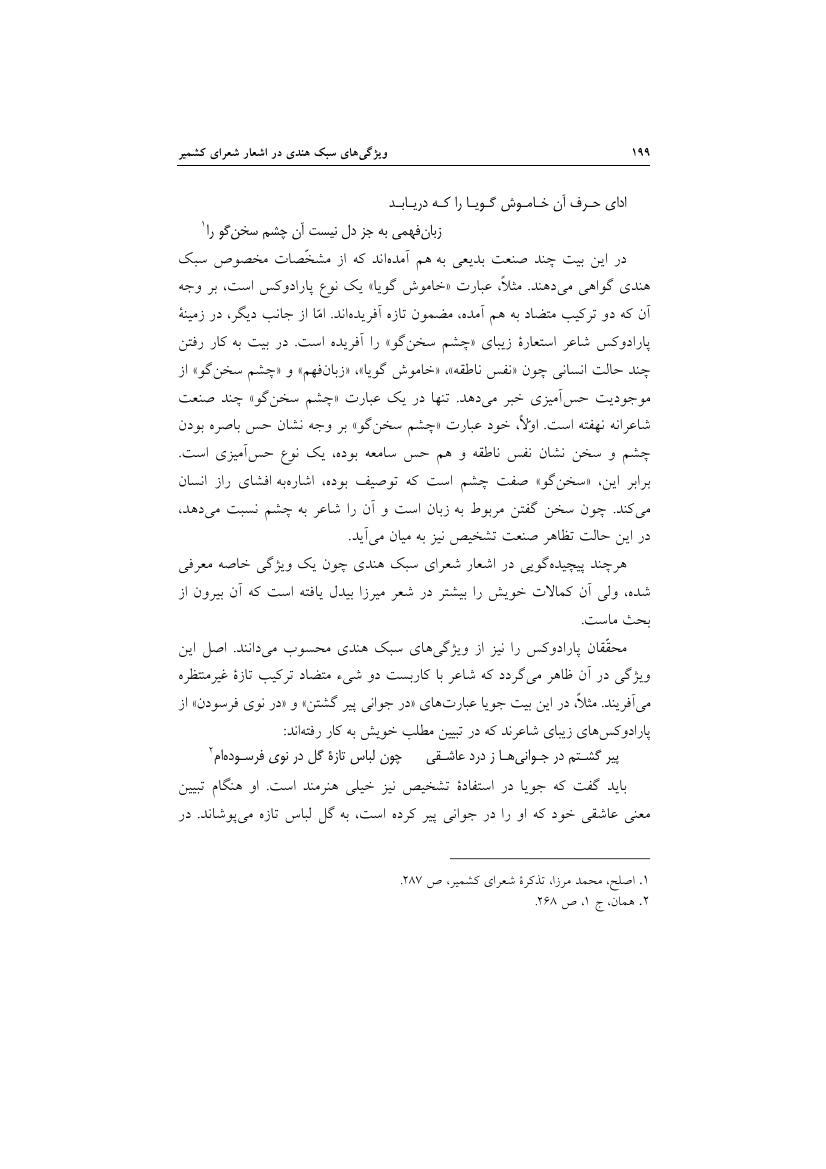 ۱۹۹ ویژگی‌های سبک هندی در اشعار شعرای کشمیر
ادای حرف آن خاموش گویا را که دریابد
زبان‌فهمی به جز دل نیست آن چشم سخن‌گو را۱
در این بیت چند صنعت بدیعی به هم آمده‌اند که از مشخّصات مخصوص سبک
هندی گواهی می‌دهند. مثلاً، عبارت «خاموش گویا» یک نوع پارادوکس است، بر وجه
آن که دو ترکیب متضاد به هم آمده، مضمون تازه آفریده‌اند. امّا از جانب دیگر، در زمینۀ
پارادوکس شاعر استعارۀ زیبای «چشم سخن‌گو» را آفریده است. در بیت به کار رفتن
چند حالت انسانی چون «نفس ناطقه»، «خاموش گویا»، «زبان‌فهم» و «چشم سخن‌گو» از
موجودیت حس‌آمیزی خبر می‌دهد. تنها در یک عبارت «چشم سخن‌گو» چند صنعت
شاعرانه نهفته است. اولاً، خود عبارت «چشم سخن‌گو» بر وجه نشان حس باصره بودن
چشم و سخن نشان نفس ناطقه و هم حس سامعه بوده، یک نوع حس‌آمیزی است.
برابر این، «سخن‌گو» صفت چشم است که توصیف بوده، اشاره‌به افشای راز انسان
می‌کند. چون سخن گفتن مربوط به زبان است و آن را شاعر به چشم نسبت می‌دهد،
در این حالت تظاهر صنعت تشخیص نیز به میان می‌آید.
هرچند پیچیده‌گویی در اشعار شعرای سبک هندی چون یک ویژگی خاصه معرفی
شده، ولی آن کمالات خویش را بیشتر در شعر میرزا بیدل یافته است که آن بیرون از
بحث ماست.
محقّقان پارادوکس را نیز از ویژگی‌های سبک هندی محسوب می‌دانند. اصل این
ویژگی در آن ظاهر می‌گردد که شاعر با کاربست دو شیء متضاد ترکیب تازۀ غیرمنتظره
می‌آفریند. مثلاً، در این بیت جویا عبارت‌های «در جوانی پیر گشتن» و «در نوی فرسودن» از
پارادوکس‌های زیبای شاعرند که در تبیین مطلب خویش به کار رفته‌اند:
پیر گشتم در جوانی‌ها ز درد عاشقی چون لباس تازۀ گل در نوی فرسوده‌ام۲
باید گفت که جویا در استفادۀ تشخیص نیز خیلی هنرمند است. او هنگام تبیین
معنی عاشقی خود که او را در جوانی پیر کرده است، به گل لباس تازه می‌پوشاند. در
۱. اصلح، محمد مرزا، تذکرۀ شعرای کشمیر، ص ۲۸۷.
۲. همان، ج ۱، ص ۲۶۸.